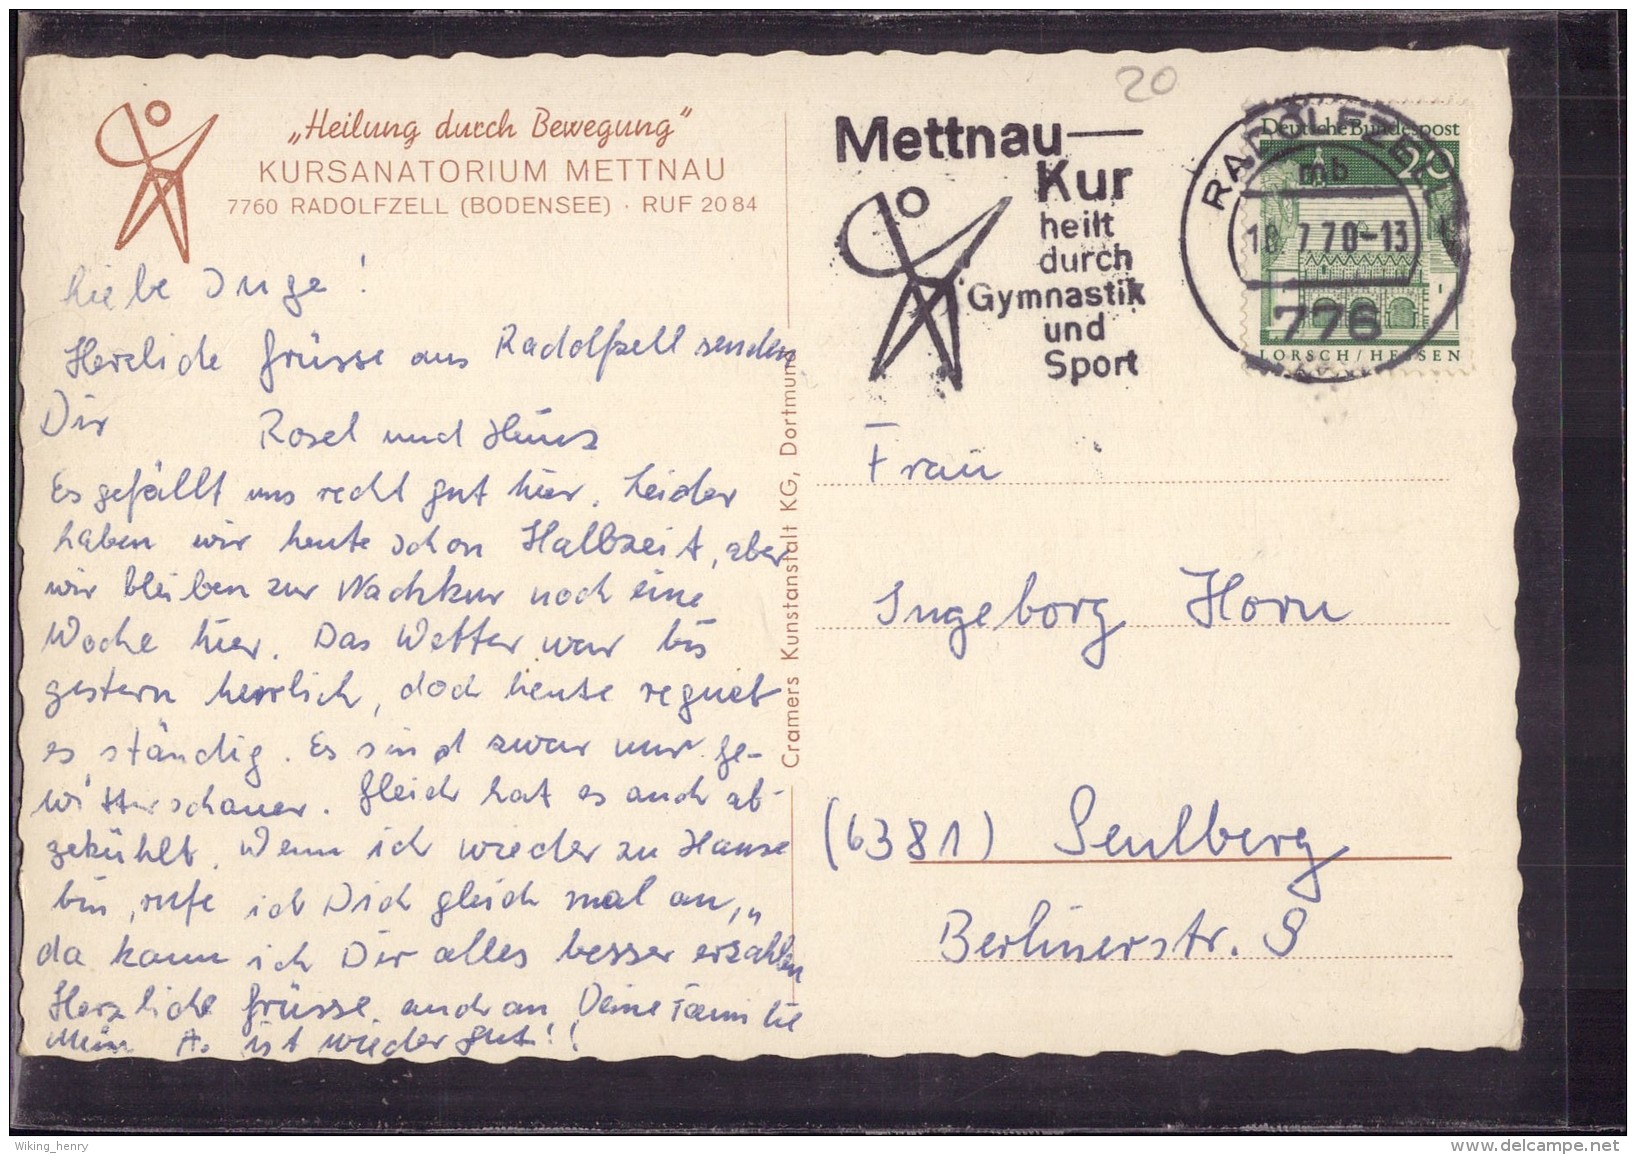 „Heilung durch Bewegung"
KURSANATORIUM METTNAU
7760 RADOLFZELL (BODENSEE) · RUF 20 84
Liebe Inge!
Herzliche Grüsse aus Radolfzell senden
Dir Rosel und
Es gefällt uns recht gut hier. Leider
haben wir heute schon Halbzeit, aber
wir bleiben zur Nachkur noch eine
Woche hier. Das Wetter war bis
gestern herrlich, doch heute regnet
es ständig. Es sind zwar nur Ge-
witterschauer. Gleich hat es auch ab-
gekühlt. Wenn ich wieder zu Hause
bin, rufe ich Dich gleich mal an,
da kann ich Dir alles besser erzählen
Herzliche Grüsse, auch an Deine Familie
Mein A. ist wieder gut!!
Cramers Kunstanstalt KG, Dortmund
20
Mettnau—
Kur
heilt
durch
Gymnastik
und
Sport
RADOLFZELL
mb
18.7.70-13
776
Deutsche Bundespost
20
LORSCH/HESSEN
Frau
Ingeborg Horn
(6381) Seulberg
Berlinerstr. 9
Wiking_henry
www.delcampe.net